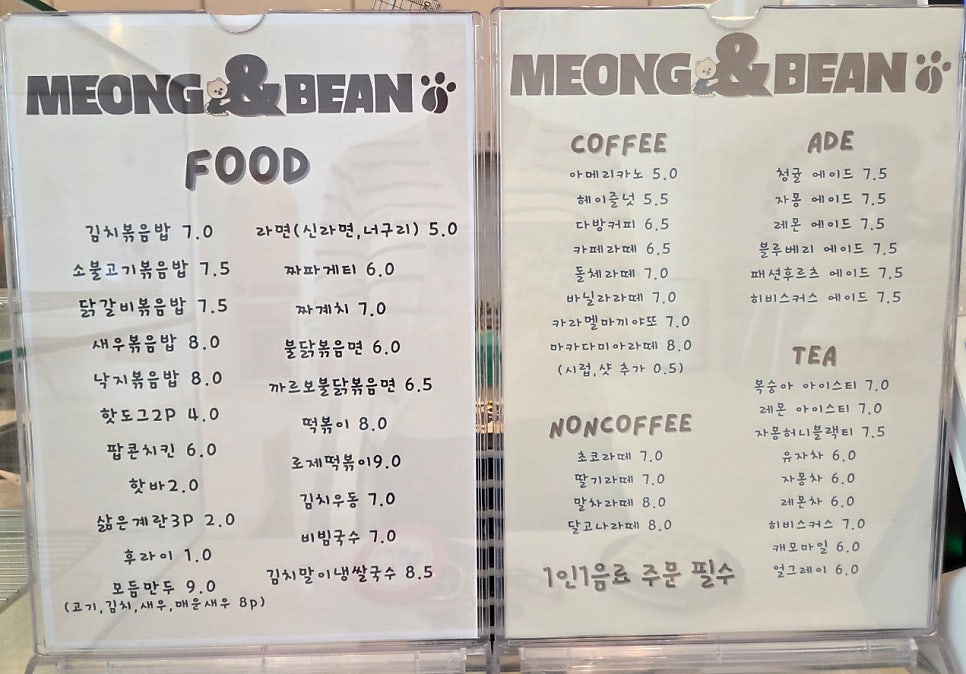 MEONG & BEAN
FOOD
김치볶음밥 7.0
소불고기볶음밥 7.5
닭갈비볶음밥 7.5
새우볶음밥 8.0
낙지볶음밥 8.0
핫도그2P 4.0
팝콘치킨 6.0
핫바2.0
삶은계란3P 2.0
후라이 1.0
모듬만두 9.0
(고기,김치,새우,매운새우 8p)
라면(신라면,너구리) 5.0
짜파게티 6.0
짜계치 7.0
불닭볶음면 6.0
까르보불닭볶음면 6.5
떡볶이 8.0
로제떡볶이9.0
김치우동 7.0
비빔국수 7.0
김치말이냉쌀국수 8.5
MEONG & BEAN
COFFEE
아메리카노 5.0
헤이즐넛 5.5
다방커피 6.5
카페라떼 6.5
돌체라떼 7.0
바닐라라떼 7.0
카라멜마끼야또 7.0
마카다미아라떼 8.0
(시럽,샷 추가 0.5)
NONCOFFEE
초코라떼 7.0
딸기라떼 7.0
말차라떼 8.0
달고나라떼 8.0
1인1음료 주문 필수
ADE
청귤 에이드 7.5
자몽 에이드 7.5
레몬 에이드 7.5
블루베리 에이드 7.5
패션후르츠 에이드 7.5
히비스커스 에이드 7.5
TEA
복숭아 아이스티 7.0
레몬 아이스티 7.0
자몽허니블랙티 7.5
유자차 6.0
자몽차 6.0
레몬차 6.0
히비스커스 7.0
캐모마일 6.0
얼그레이 6.0